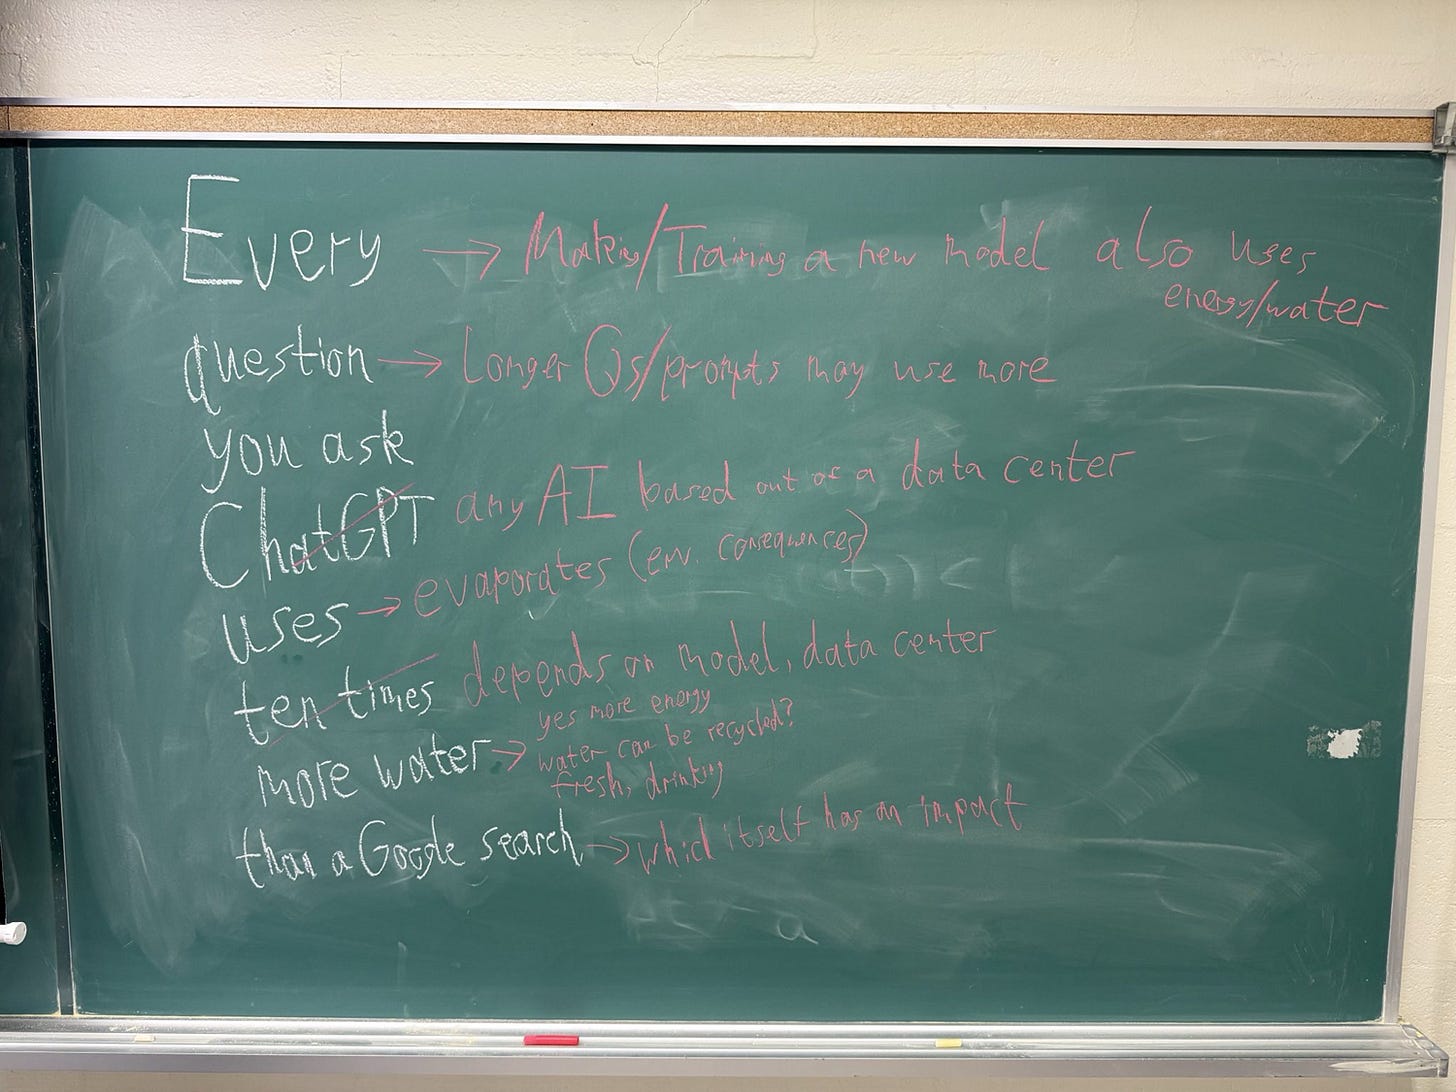 Every → Making/Training a new model also uses
energy/water
question → Longer Qs/prompts may use more
you ask
ChatGPT any AI based out of a data center
uses → evaporates (env. consequences)
ten times depends on model, data center
yes more energy
more water → water can be recycled?
fresh, drinking
than a Google search → which itself has an impact